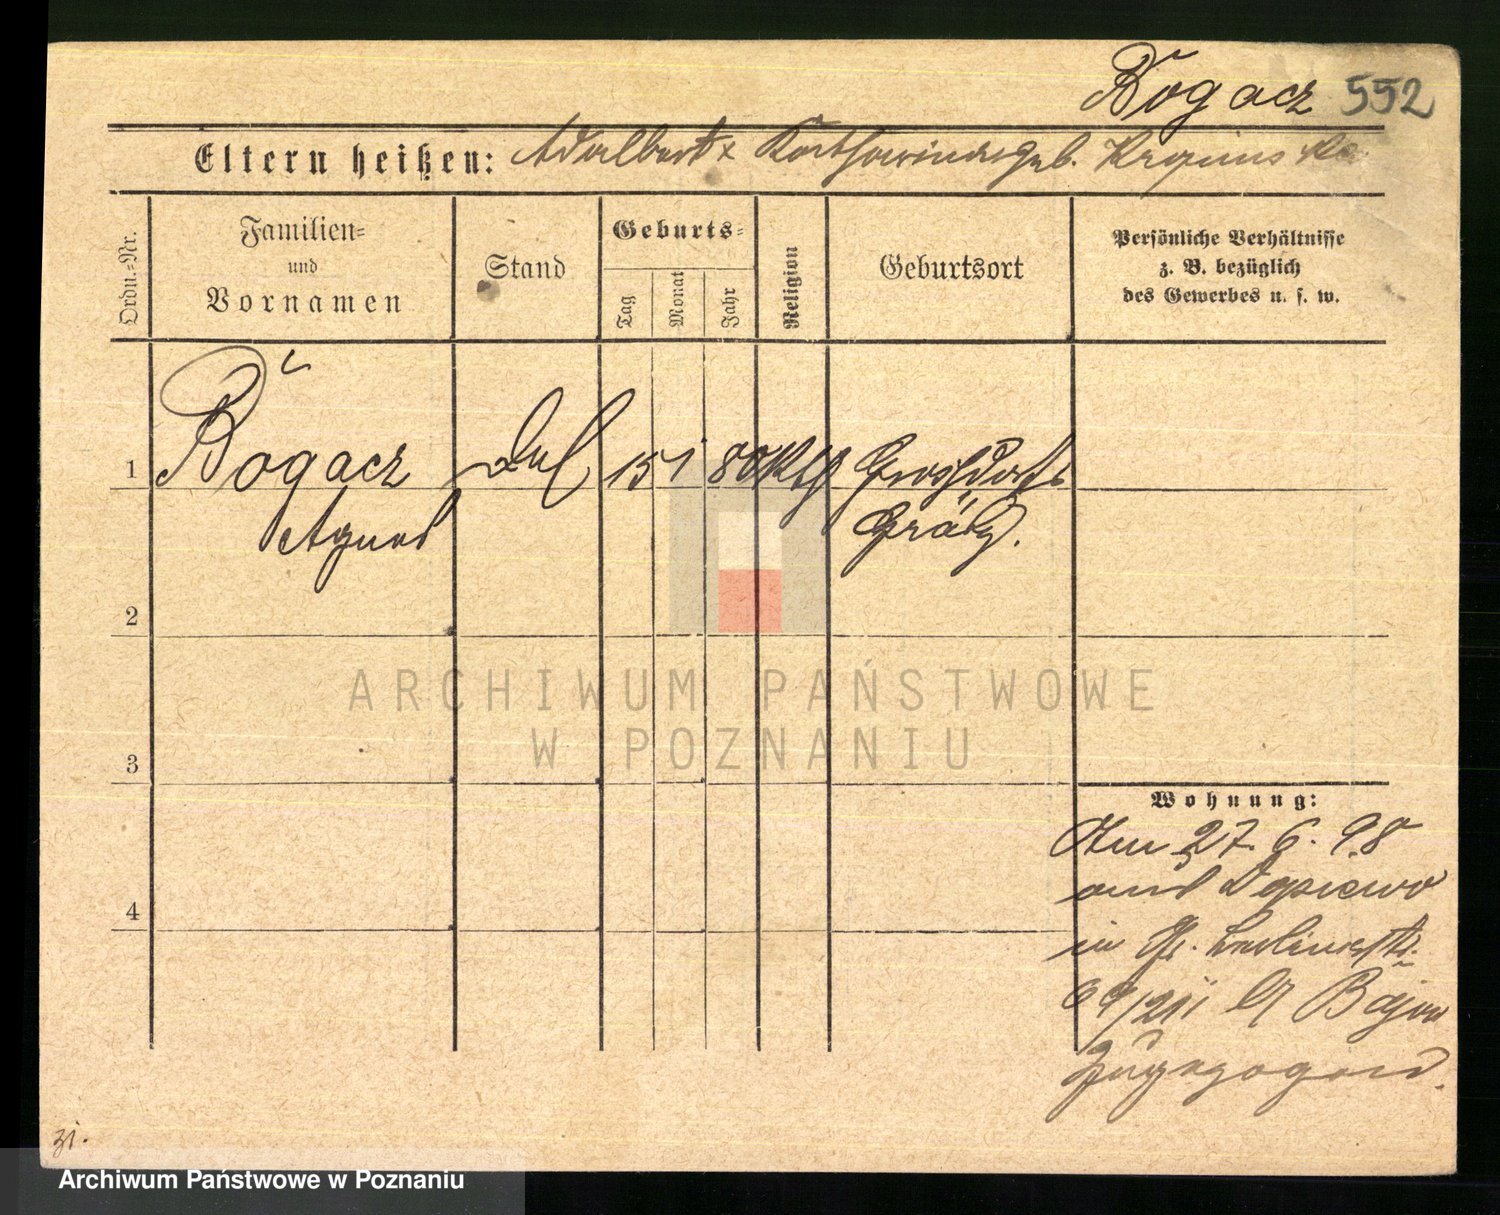 Bogacz 552
Eltern heißen: Adalbert & Katharina geb.
Ordn.=Nr.
Familien= und Vornamen
Stand
Geburts=
Tag
Monat
Jahr
Religion
Geburtsort
Persönliche Verhältnisse
z. B. bezüglich
des Gewerbes u. s. w.
1 Bogacz 15 1 80 Kth Grossdorf
Agnes Grätz.
2
3
4
Wohnung:
Am 27. 6. 98
aus Dopiewo
in
zugezogen.
zi.
ARCHIWUM PAŃSTWOWE
W POZNANIU
Archiwum Państwowe w Poznaniu